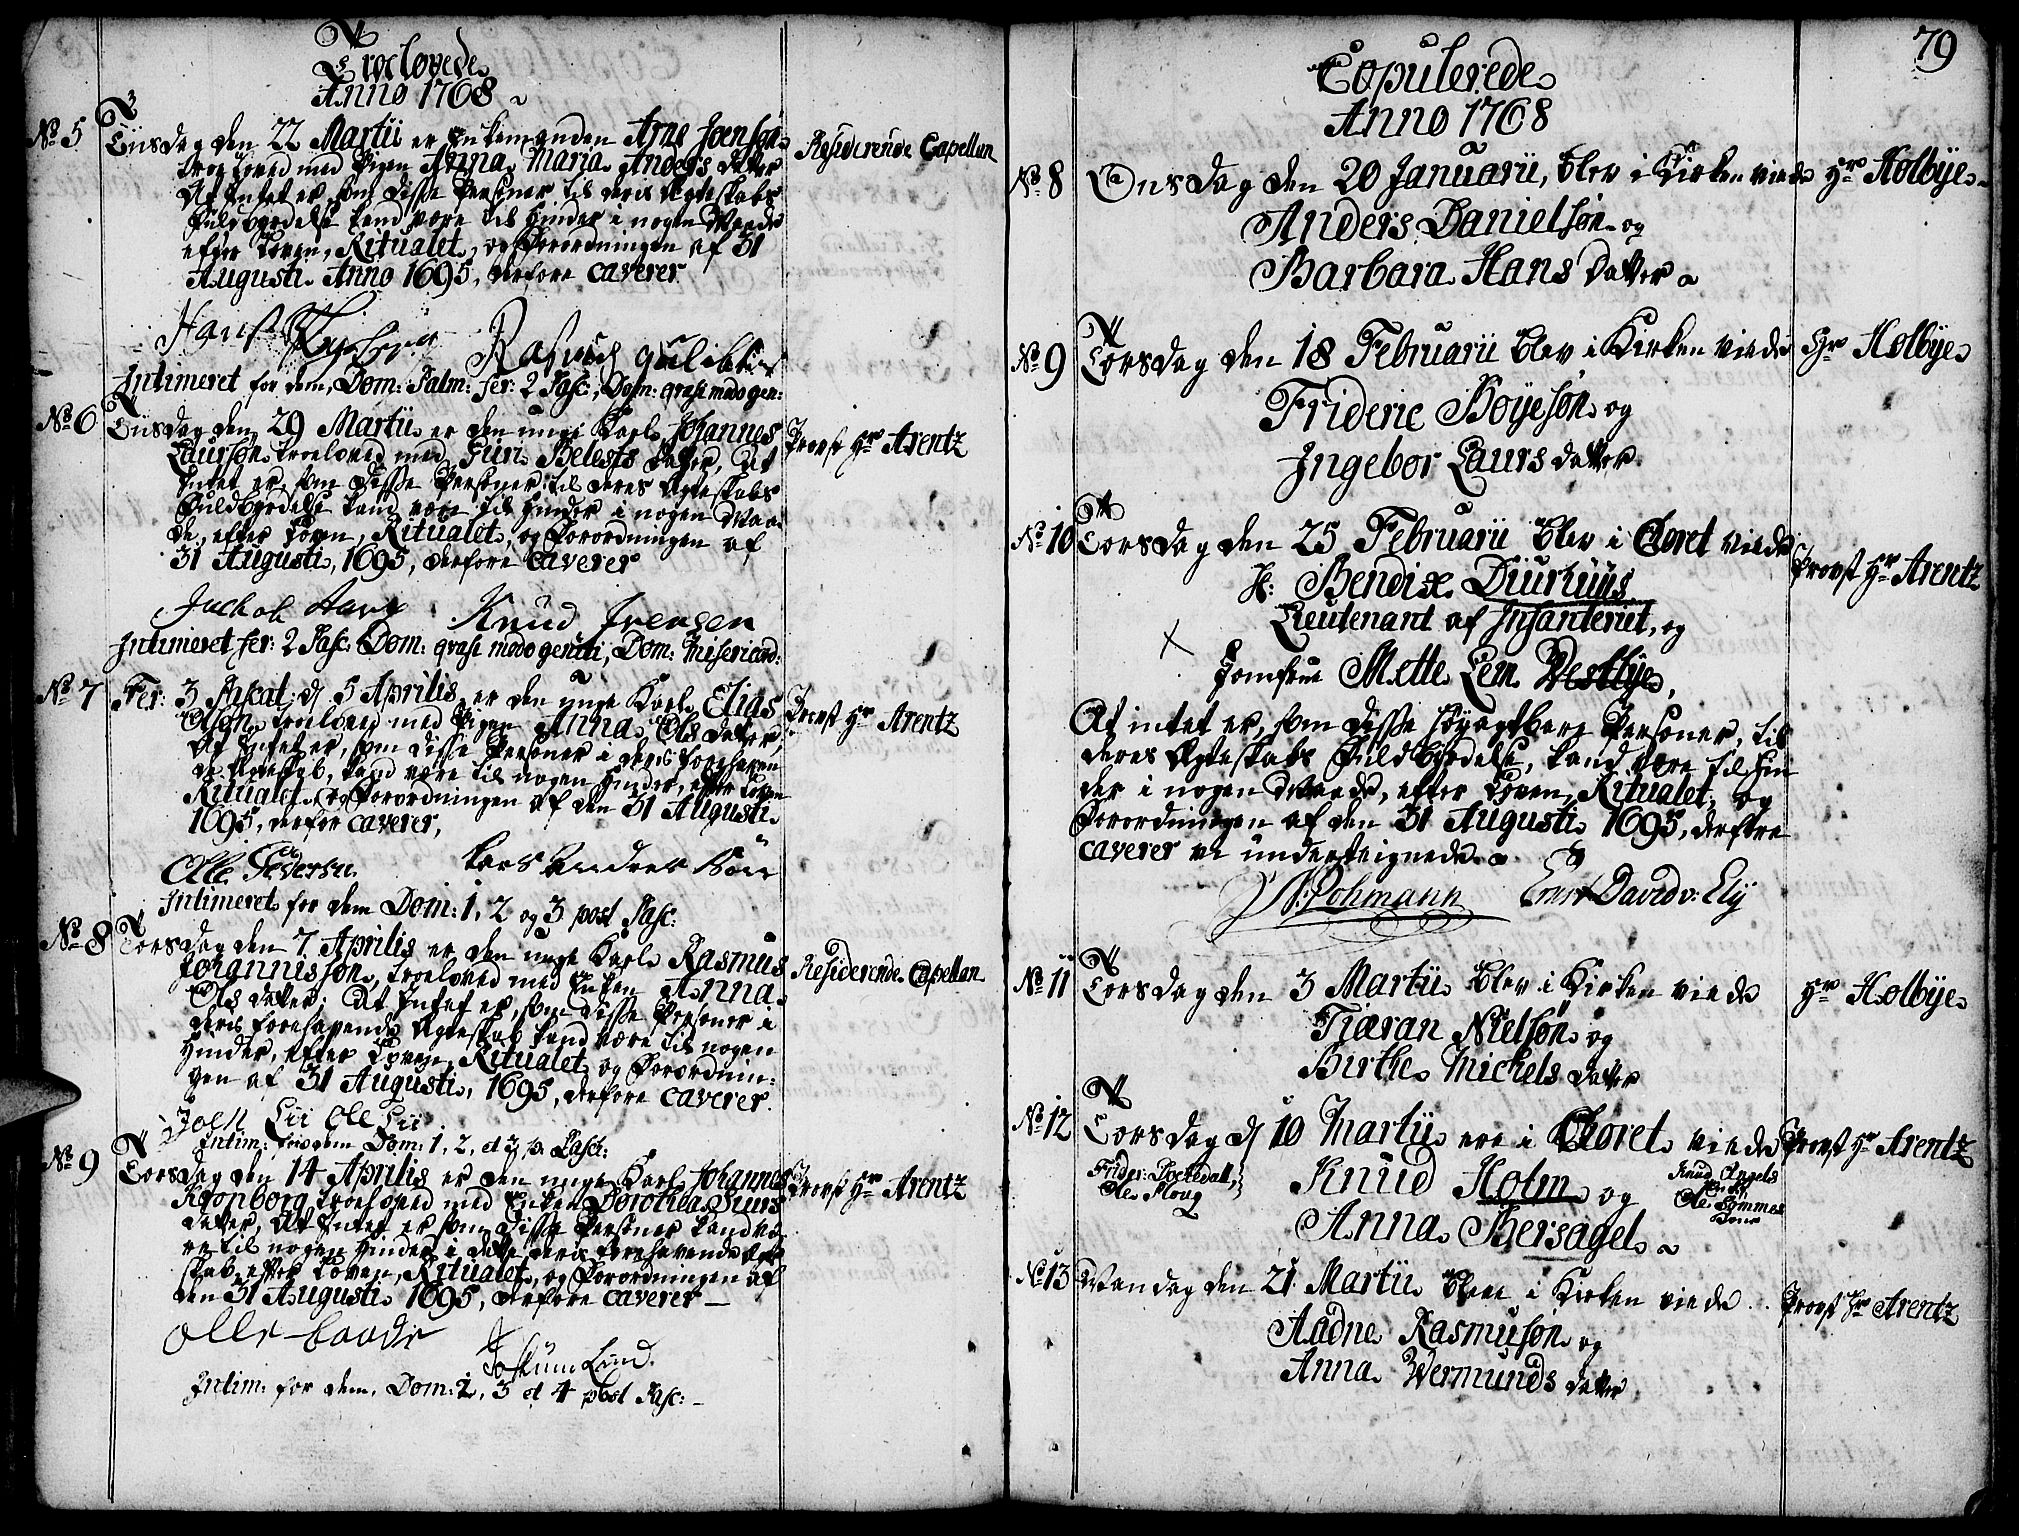 Troelovede
Anno 1768
No 5
Tiisdag den 22 Martii er Enkemanden Arne Joensøn
troeloved med Pigen Anna Maria Anders Datter
At Intet er, som disse Personer til deris Egteskabs
Fuldbyrdelse kand være til Hinder i nogen Maade
efter Loven, Ritualet, og Forordningen af 31
Augusti Anno 1695, derfore caverer
Residerende Capellan
Hans
Rasmus
Intimeret for dem, Dom: Palm: fer: 2 Pasc:, Dom: quasimodogen:
No 6
Tiisdag den 29 Martii er den unge Karl Johannes
Laursøn troeloved med Siuri Belests Datter, At
Intet er, som disse Personer til deres Egteskabs
Fuldbyrdelse kand være til Hinder i nogen Maa-
de, efter Loven, Ritualet, og Forordningen af
31 Augusti, 1695, derfore caverer
Provst Hr Arentz
Jachob Aarg Knud Irensen
Intimeret fer: 2 Pasc: Dom: quasi modo geniti, Dom: Misericord:
No 7
Fer: 3 Pascat: d 5 Aprilis er den unge Karl Elias
Olsøn troeloved med Pigen Anna Ols Datter,
At Intet er, som disse Personer i deris forehaven
de Egteskab, kand være til nogen Hinder, efter Loven
Ritualet, og Forordningen af den 31 Augusti
1695, derfor caverer,
Provst Hr Arentz
Olle Pedersen Lars Andersøn
Intimeret for dem Dom: 1, 2 og 3 post Pasc:
No 8
Torsdag den 7 Aprilis er den unge Karl Rasmus
Johannissøn, troeloved med Enken Anna
Ols Datter; At Intet er, som disse Personer i
deris forehavende Egteskab kand være til nogen
Hinder, efter Loven, Ritualet og Forordnin-
gen af 31 Augusti, 1695, derfore caverer.
Residerende Capellan
Joen Lii Ole Lii
Intim: for dem Dom: 1, 2, et 3 p. Pasc:
No 9
Torsdag den 14 Aprilis er den unge Karl Johannes
Kronborg troeloved med Enken Dorothea Siurs
Datter, At Intet er som disse Personer kand væ-
re til nogen Hinder i dette deris forehavende Egte
skab, efter Loven, Ritualet, og Forordningen af
den 31 Augusti 1695, derfore caverer
Provst Hr Arentz
Olle
Joshum Lund.
Intim: for dem, Dom: 2, 3 et 4 post Pasc:
79
Copulerede
Anno 1768
No 8
Onsdag den 20 Januarii, blev i Kirken viede
Hr Holbye
Anders Danielsøn og
Barbara Hans Datter
No 9
Torsdag den 18 Februarii blev i Kirken viede
Hr Holbye
Frideric Boyesøn og
Ingebor Laurs Datter
No 10
Torsdag den 25 Februarii blev i Choret viede
Provst Hr Arentz
H: Bendix Diurhuus
Lieutenant af Infanteriet, og
Jomfrue Mette Lem Vestbye,
At intet er, som disse høyagtbare Personer, til
deres Egteskabs Fuldbyrdelse, kand være til Hin
der i nogen Maade, efter Loven, Ritualet, og
Forordningen af den 31 Augusti 1695, derfore
caverer vi underteignede
Pohmann David v: Ely
No 11
Torsdag den 3 Martii blev i Kirken viede
Hr Holbye
Tiæran Nielsøn og
Birthe Michels Datter
No 12
Torsdag d 10 Martii ere i Choret viede
Provst Hr Arentz
Knud Holm og
Anna Bersagel
No 13
Mandag den 21 Martii bleve i Kirken viede
Provst Hr Arentz
Aadne Rasmusøn og
Anna Wermunds Datter